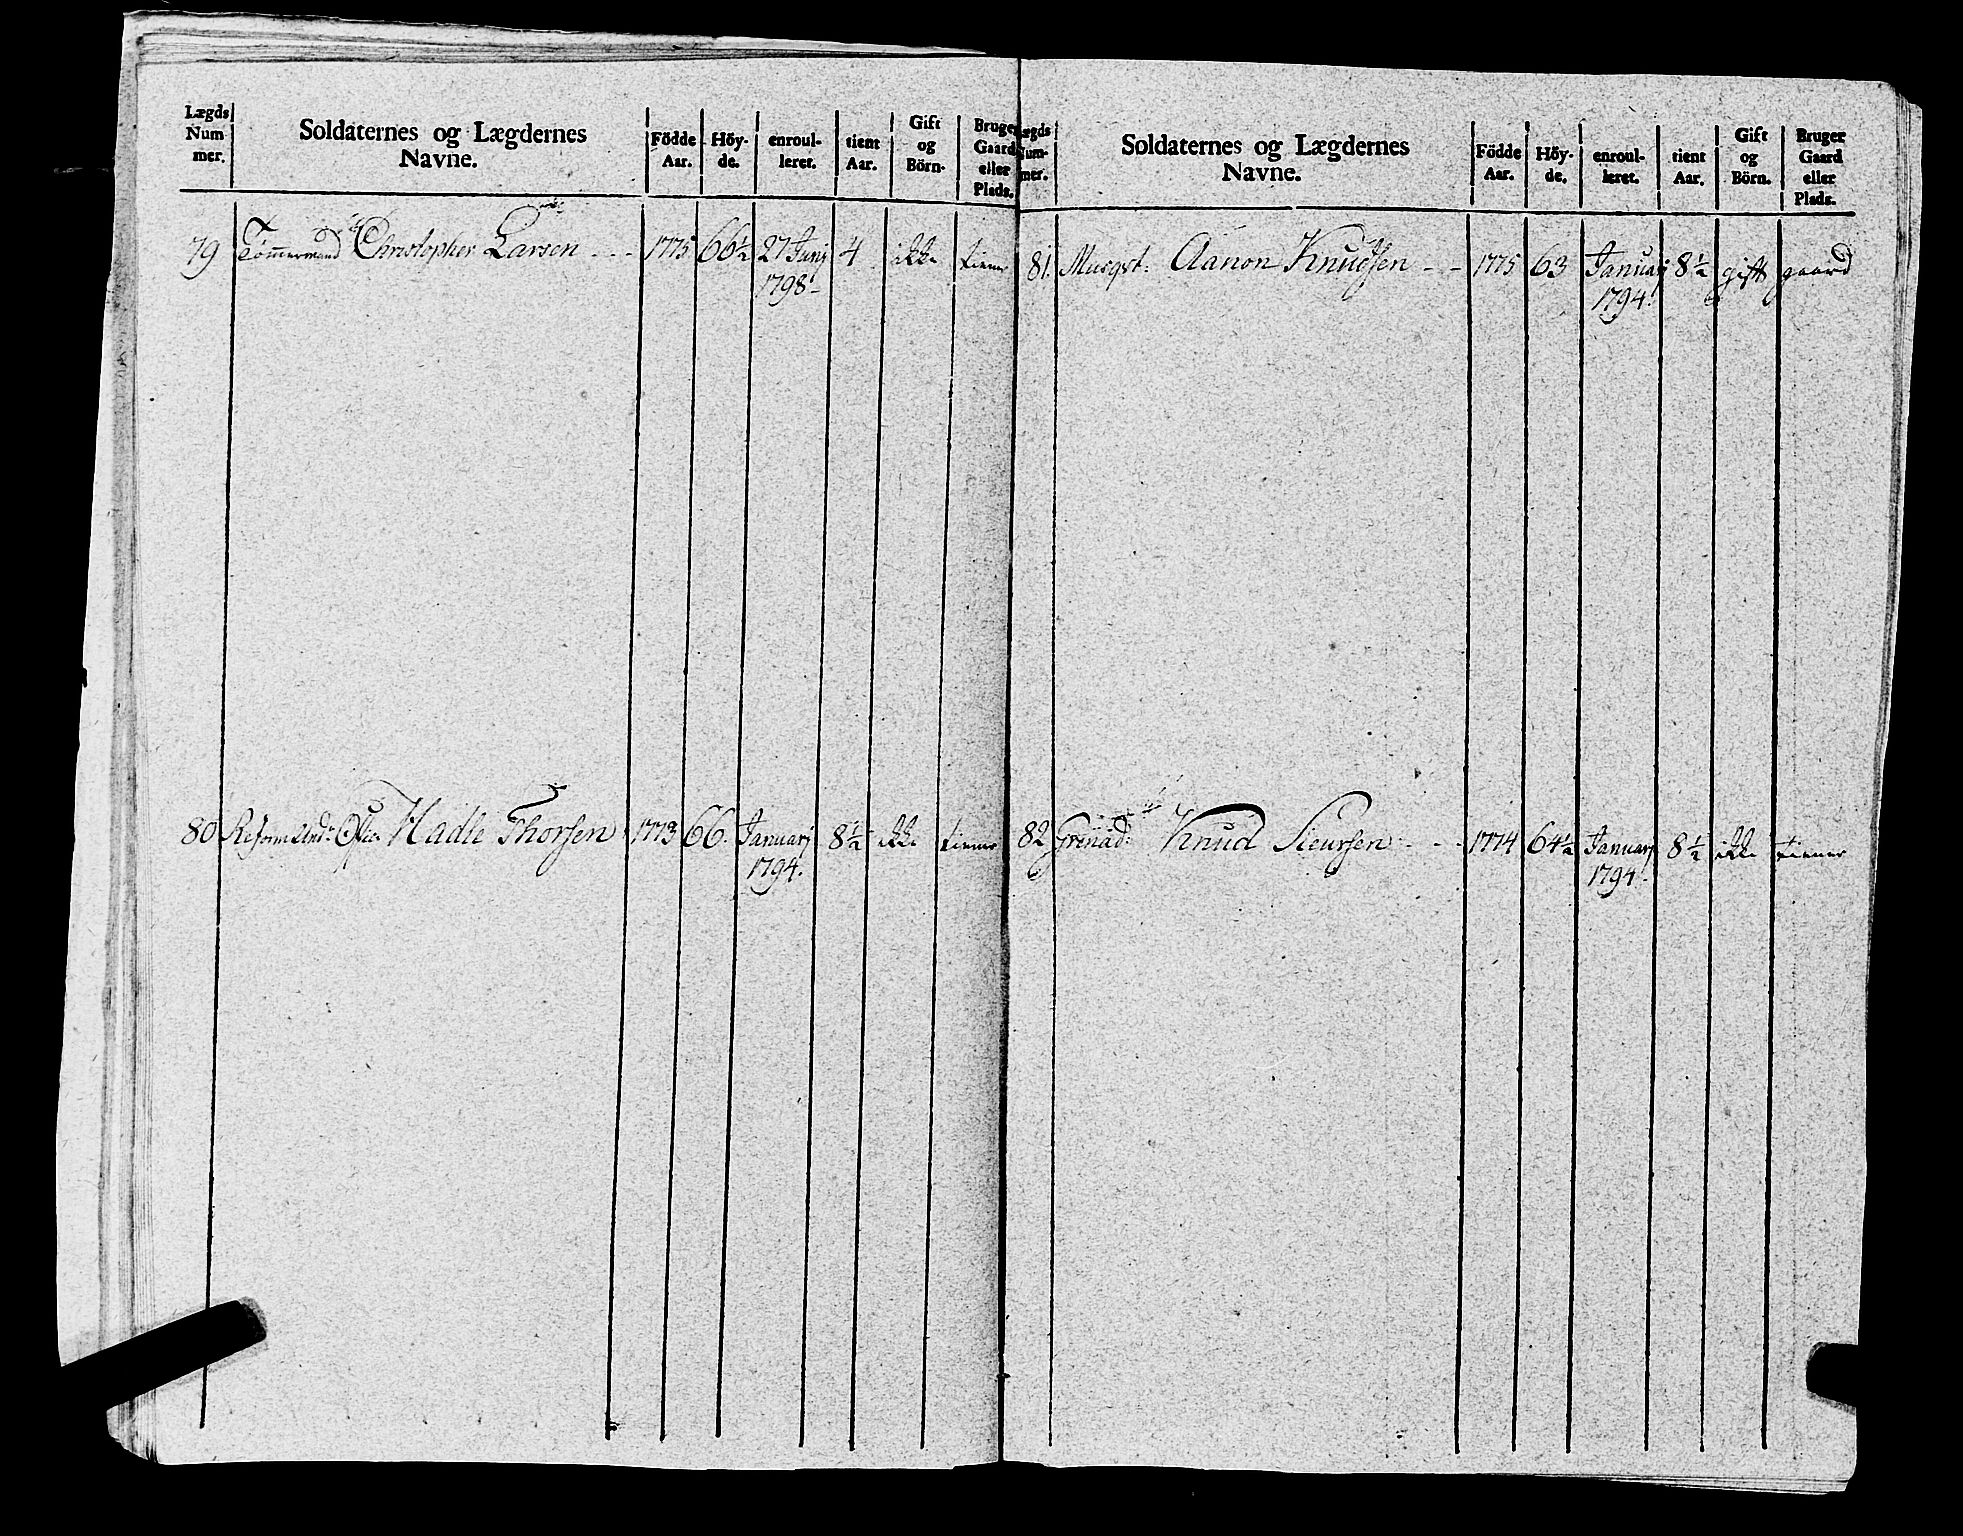 Lægds Num mer. Soldaternes og Lægdernes Navne. Födde Aar. Höy- de. enroul- leret. tient Aar. Gift og Börn. Bruger Gaard eller Plads.
79 Tømmermand Christopher Larsen - - - 1775 66½ 27 Junj 4 ikke tiener
1798
80 Reform: Und: Ofic: Hadle Thorsen 1773 66. Januarj 8½ ikke tiener
1794.
Lægds Num- mer. Soldaternes og Lægdernes Navne. Födde Aar. Höy- de. enroul- leret. tient Aar. Gift og Börn. Bruger Gaard eller Plads.
81. Musqst: Aanon Knudsen - - 1775 63 Januarj 8½ gift gaard
1794.
82 Grenad: Knud Sieursen - - - 1774 64½ Januarj 8½ ikke tiener
1794.